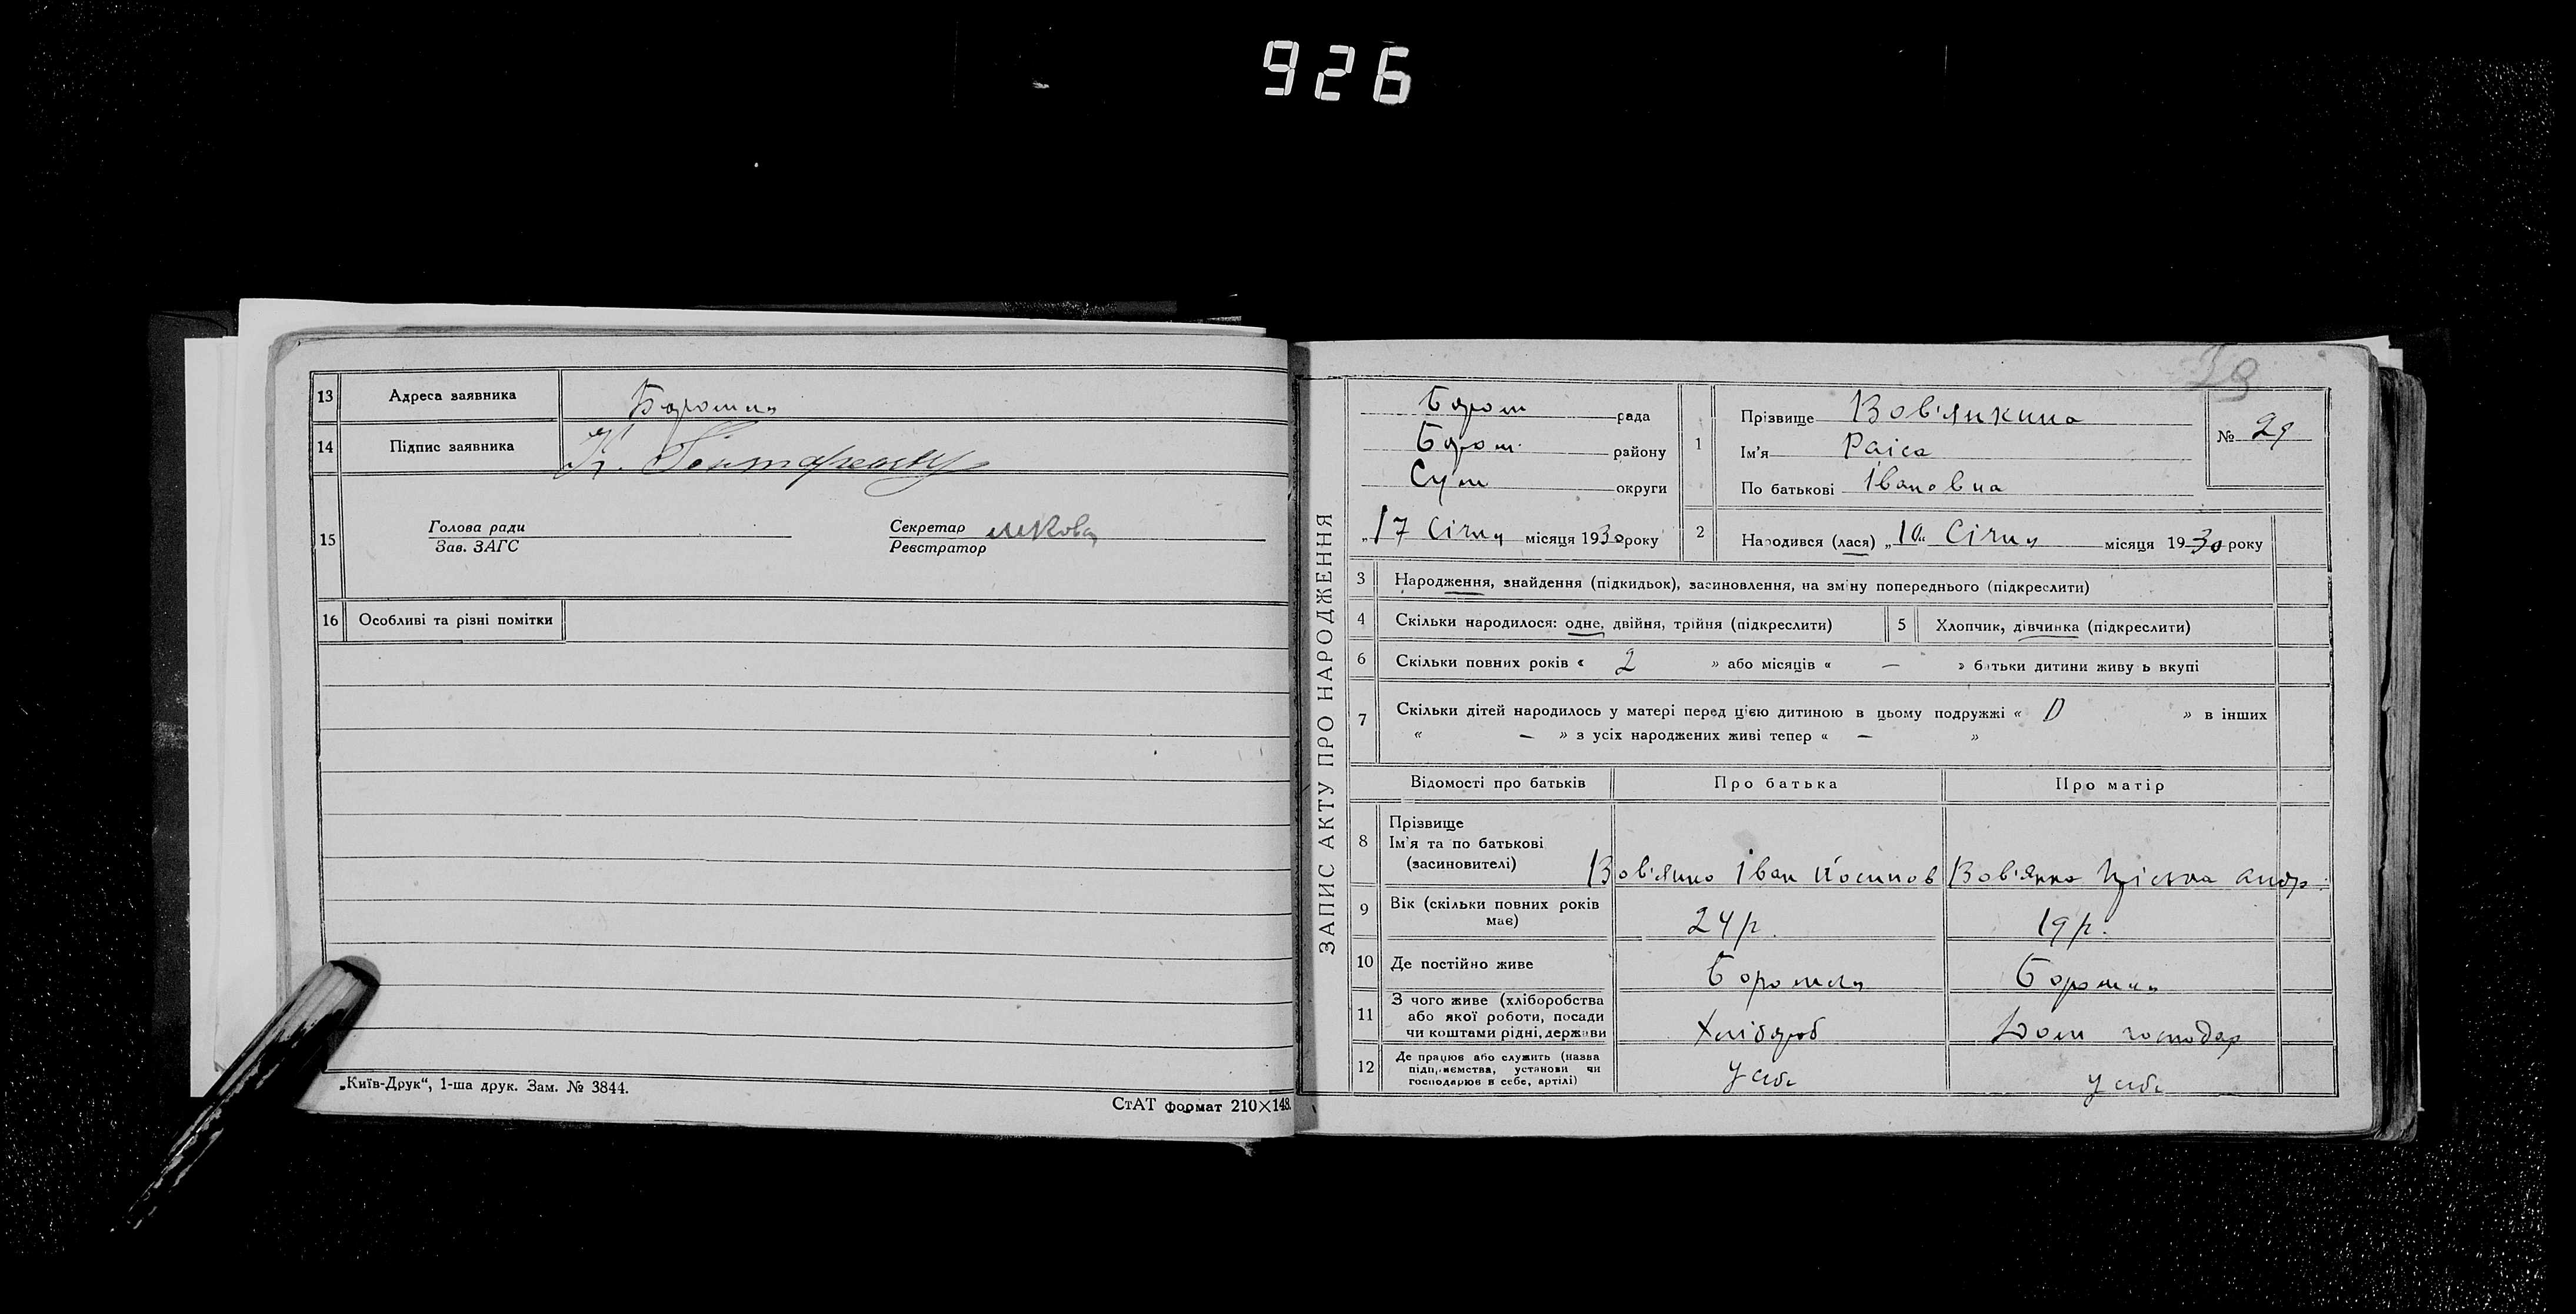 926
13 Адреса заявника Боромля
14 Підпис заявника К.
15 Голова ради
Зав. ЗАГС
Секретар
Реєстратор
16 Особливі та різні помітки
„Київ-Друк“, 1-ша друк. Зам. № 3844.
СтАТ формат 210×148.
39
ЗАПИС АКТУ ПРО НАРОДЖЕННЯ
Бором рада
Бором. району
Сум округи
„17 Січня місяця 1930 року
1 Прізвище
Ім'я Раіса
По батькові Івановна
№ 29
2 Народився (лася) „10“ Січня місяця 1930 року
3 Народження, знайдення (підкидьок), засиновлення, на зміну попереднього (підкреслити)
4 Скільки народилося: одне, двійня, трійня (підкреслити)
5 Хлопчик, дівчинка (підкреслити)
6 Скільки повних років « 2 » або місяців « — » батьки дитини живуть вкупі
7 Скільки дітей народилось у матері перед цією дитиною в цьому подружжі « 0 » в інших
« — » з усіх народжених живі тепер « — »
Відомості про батьків Про батька Про матір
8 Прізвище
Ім'я та по батькові
(засиновителі)
Іван Йосипов
9 Вік (скільки повних років
має)
24 р. 19 р.
10 Де постійно живе Боромля Боромля
11 З чого живе (хліборобства
або якої роботи, посади
чи коштами рідні, держави
Хлібороб Дом господар
12 Де працює або служить (назва
підприємства, установи чи
господарює в себе, артілі)
у себе у себе